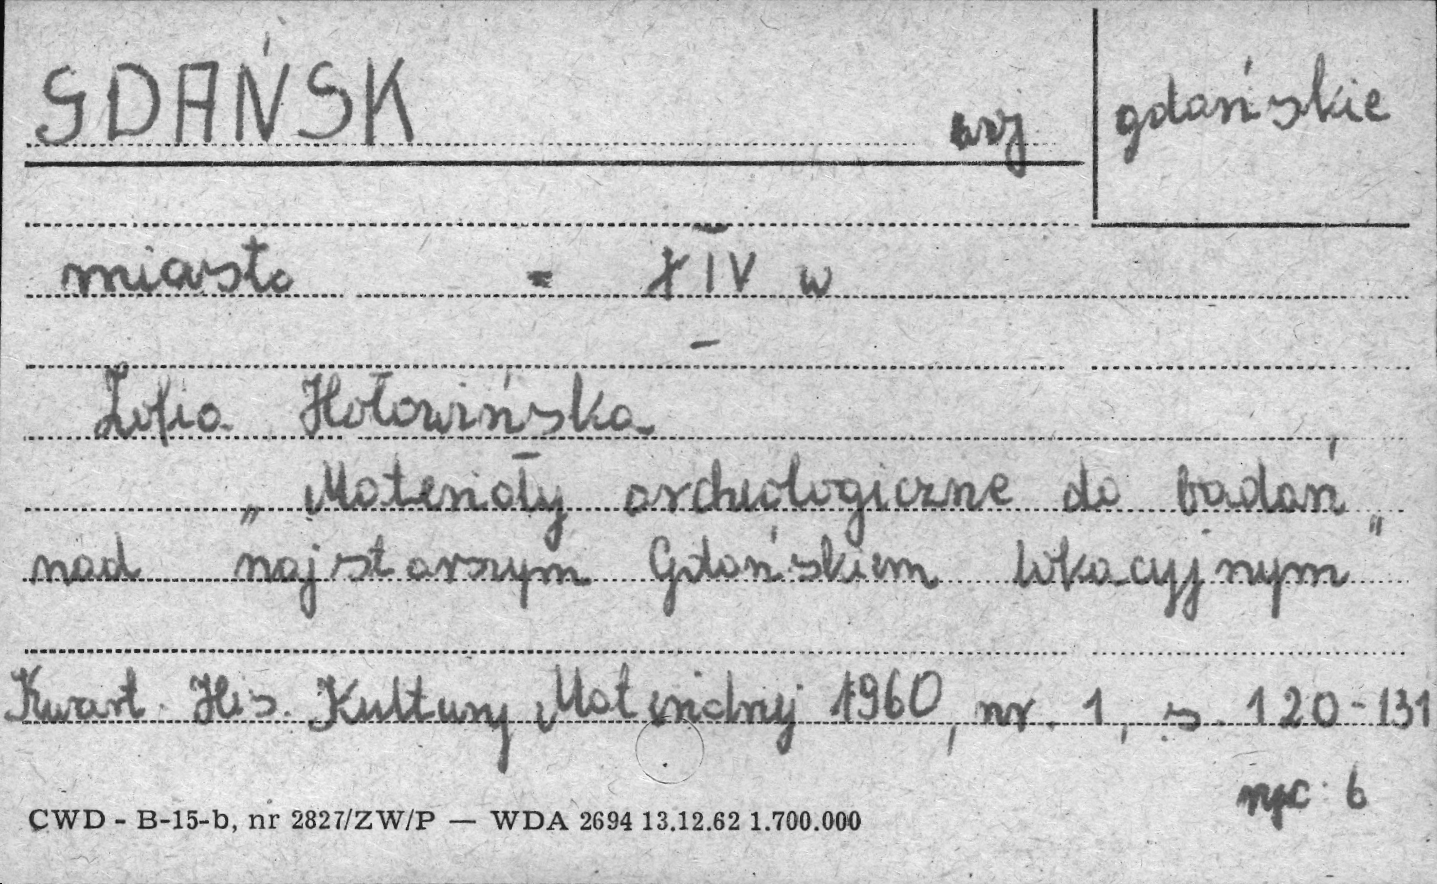 GDAŃSK woj gdańskie
miasto - XIV w
Zofia Hołowińska
„Materiały archeologiczne do badań
nad najstarszym Gdańskiem lokacyjnym"
Kwart. His. Kultury Materialnej 1960, nr. 1, s. 120-131
ryc 6
CWD - B-15-b, nr 2827/ZW/P — WDA 2694 13.12.62 1.700.000